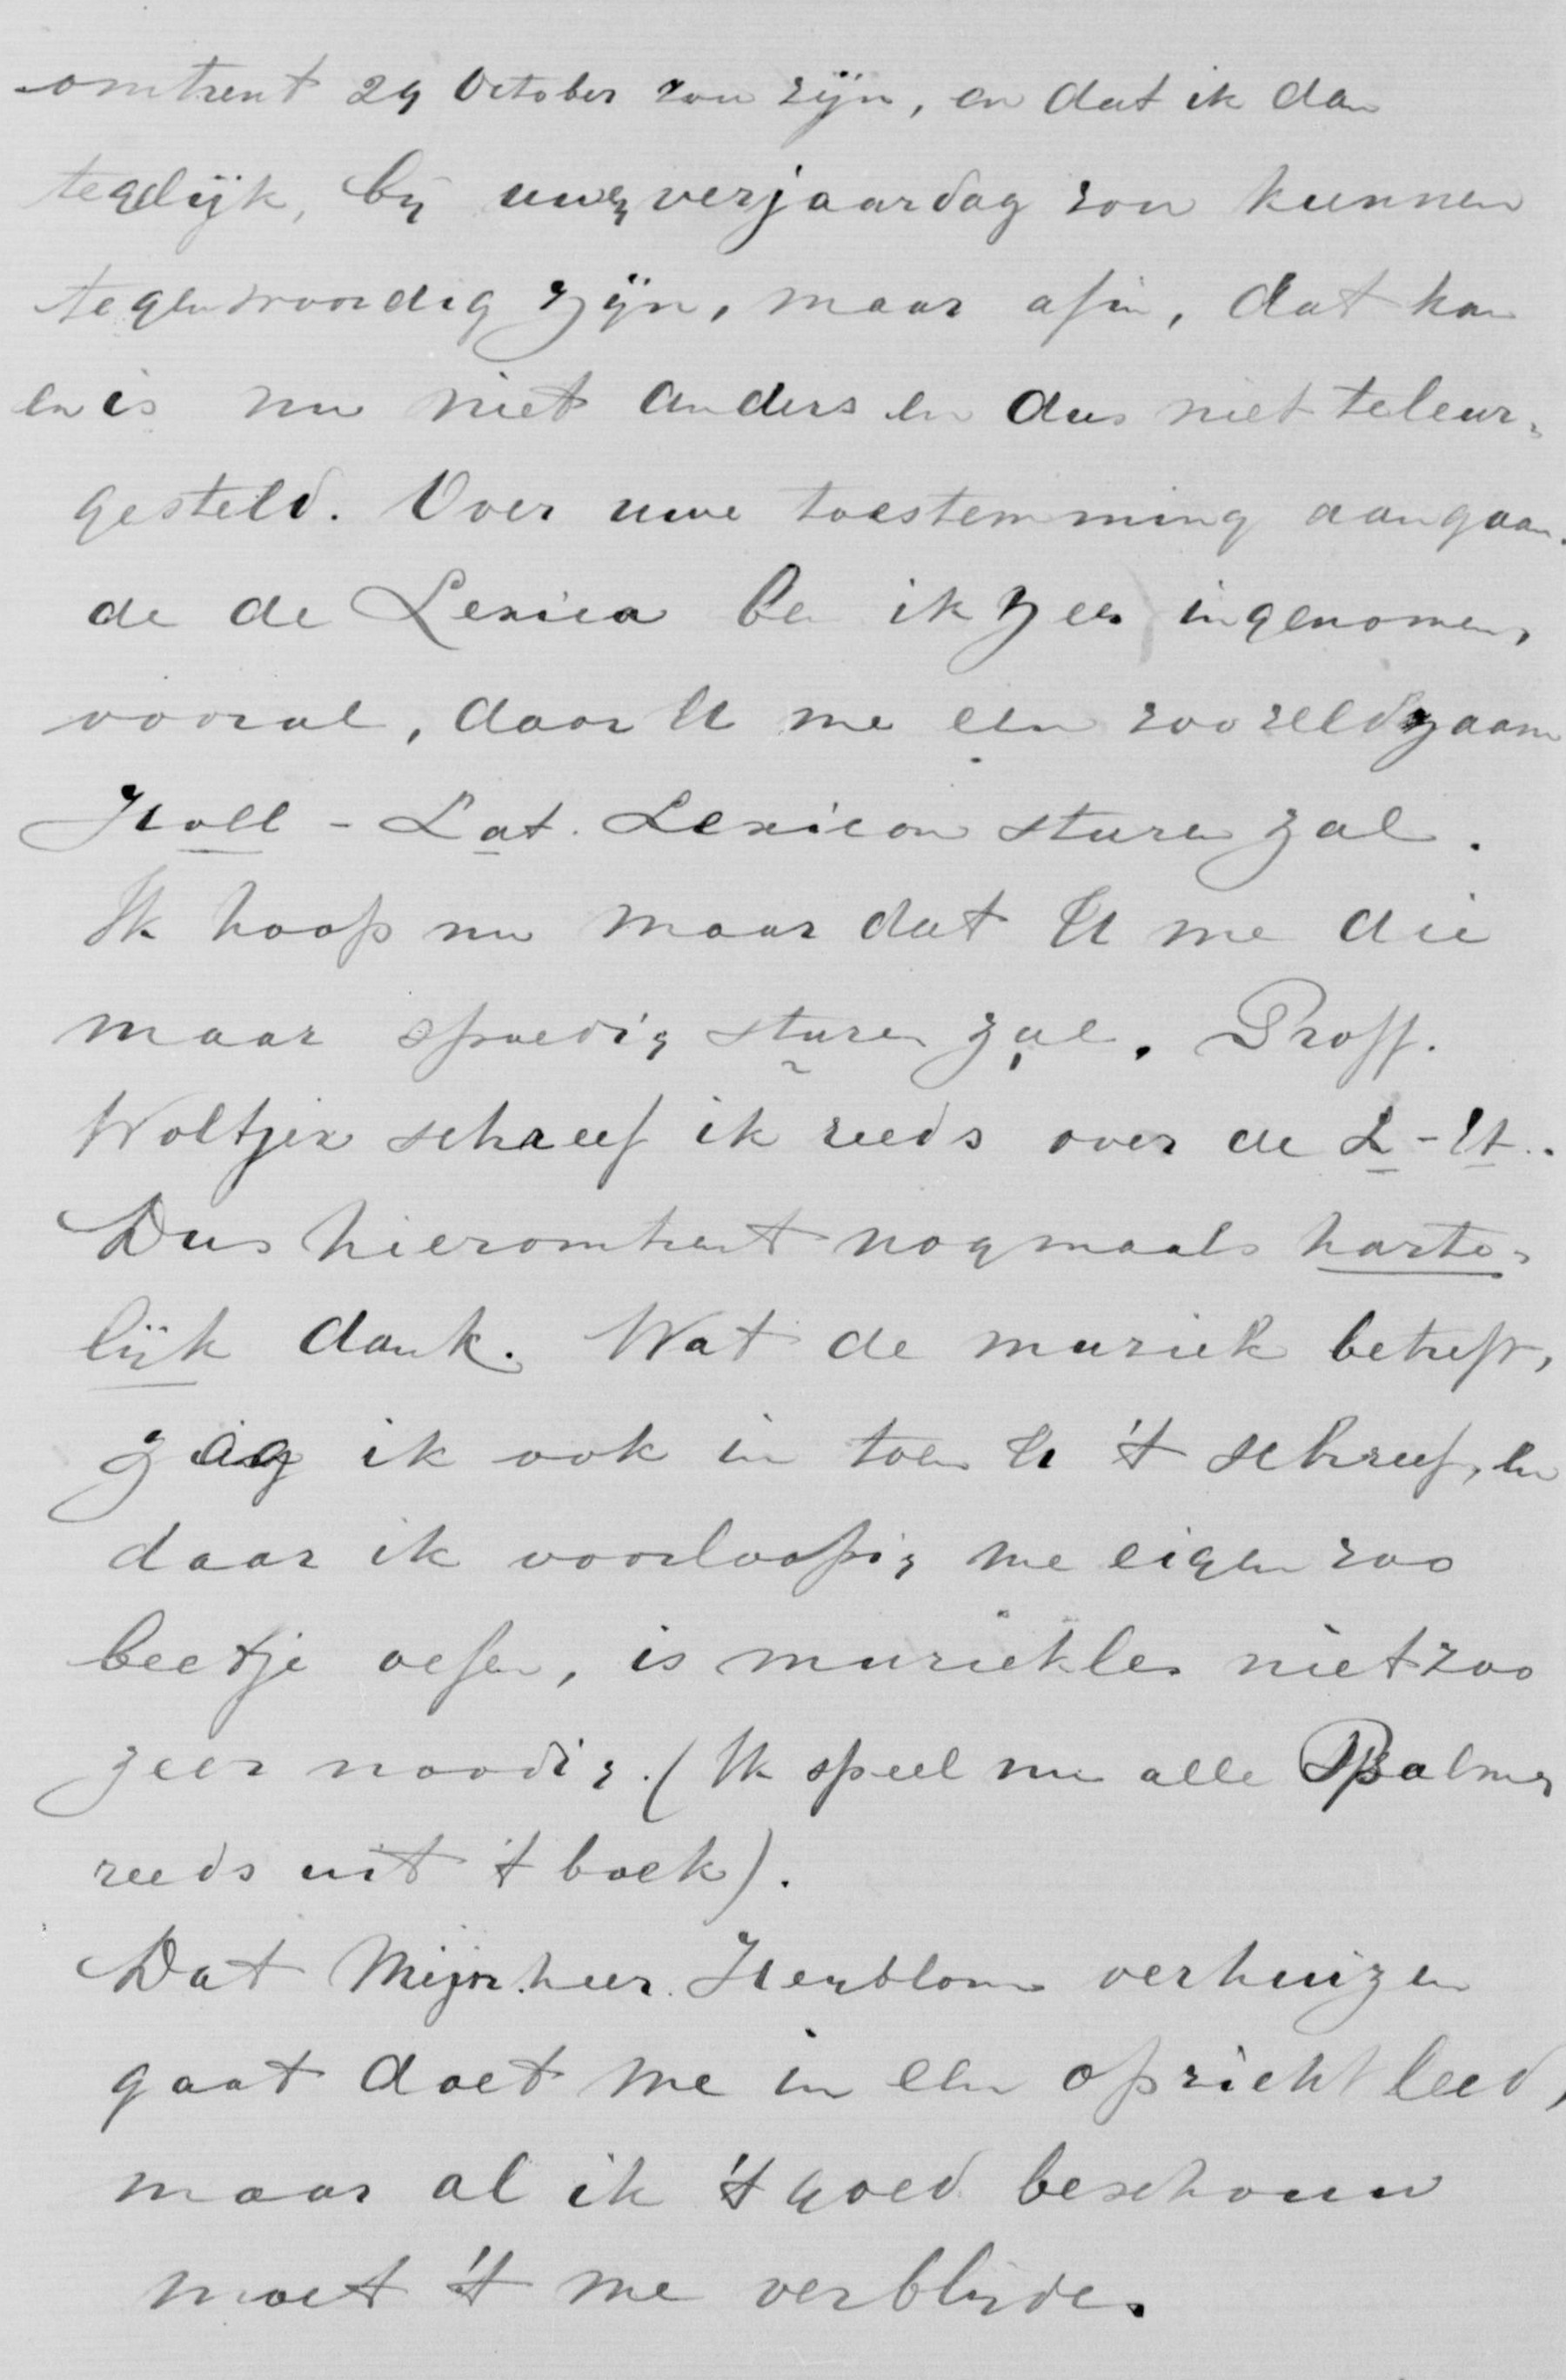 omtrent 29 October zou zijn, en dat ik dan
tegelijk, bij uwe verjaardag zou kunnen
tegenwoordig zijn, maar afin, dat kan
en is nu niet anders en dus niet teleur-
gesteld. Over uwe toestemming aangaan-
de de Lexica ben ik zeer ingenomen,
vooral, daar U me een zoo zeldzaam
Holl - Lat. Lexicon sturen zal.
Ik hoop nu maar dat U me die
maar spoedig sturen zal. Proff.
Woltjer schreef ik reeds over de L-H.
Dus hieromtrent nogmaals harte-
lijk dank. Wat de muziek betreft,
zag ik ook in toen U 't schreef, en
daar ik voorloopig me eigen zoo
beetje oefen, is muziekles niet zoo
zeer noodig. (Ik speel nu alle Psalmen
reeds uit 't boek).
Dat Mijnheer Heyblom verhuizen
gaat doet me in een opzicht leed,
maar al ik 't goed beschouw
moet 't me verblijden.